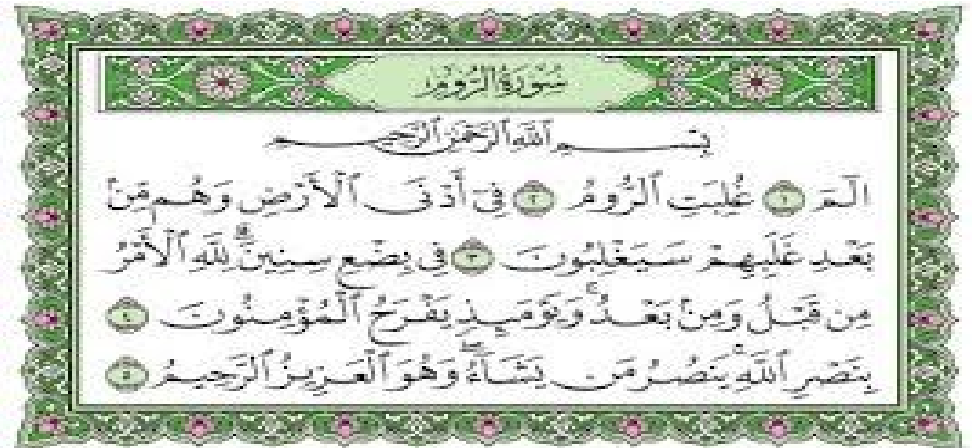 سُورَةُ الرُّومِ
بِسْمِ ٱللَّهِ ٱلرَّحْمَٰنِ ٱلرَّحِيمِ
الٓمٓ ١ غُلِبَتِ ٱلرُّومُ ٢ فِىٓ أَدْنَى ٱلْأَرْضِ وَهُم مِّنۢ
بَعْدِ غَلَبِهِمْ سَيَغْلِبُونَ ٣ فِى بِضْعِ سِنِينَ ۗ لِلَّهِ ٱلْأَمْرُ
مِن قَبْلُ وَمِنۢ بَعْدُ ۚ وَيَوْمَئِذٍ يَفْرَحُ ٱلْمُؤْمِنُونَ ٤
بِنَصْرِ ٱللَّهِ ۚ يَنصُرُ مَن يَشَآءُ ۖ وَهُوَ ٱلْعَزِيزُ ٱلرَّحِيمُ ٥